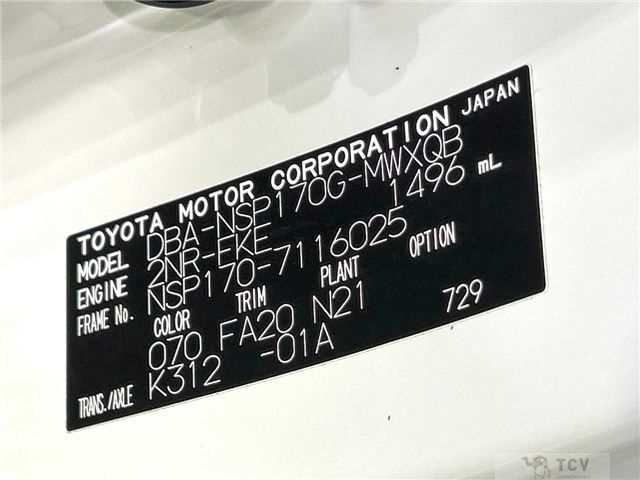 TOYOTA MOTOR CORPORATION JAPAN
MODEL DBA-NSP170G-MWXQB
ENGINE 2NR-FKE 1496 mL
FRAME No. NSP170-7116025
COLOR TRIM PLANT OPTION
070 FA20 N21 729
TRANS./AXLE K312 -01A
TCV